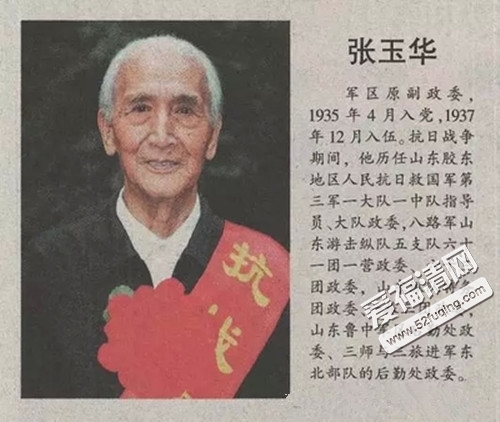 张玉华
军区原副政委，
1935年4月入党，1937
年12月入伍。抗日战争
期间，他历任山东胶东
地区人民抗日救国军第
三军一大队一中队指导
员、大队政委，八路军山
东游击纵队五支队六十
一团一营政委、
团政委，山
团政委、
山东鲁中军 勤处政
委、三师 旅进军东
北部队的后勤处政委。
抗战
爱福清网
www.52fuqing.com